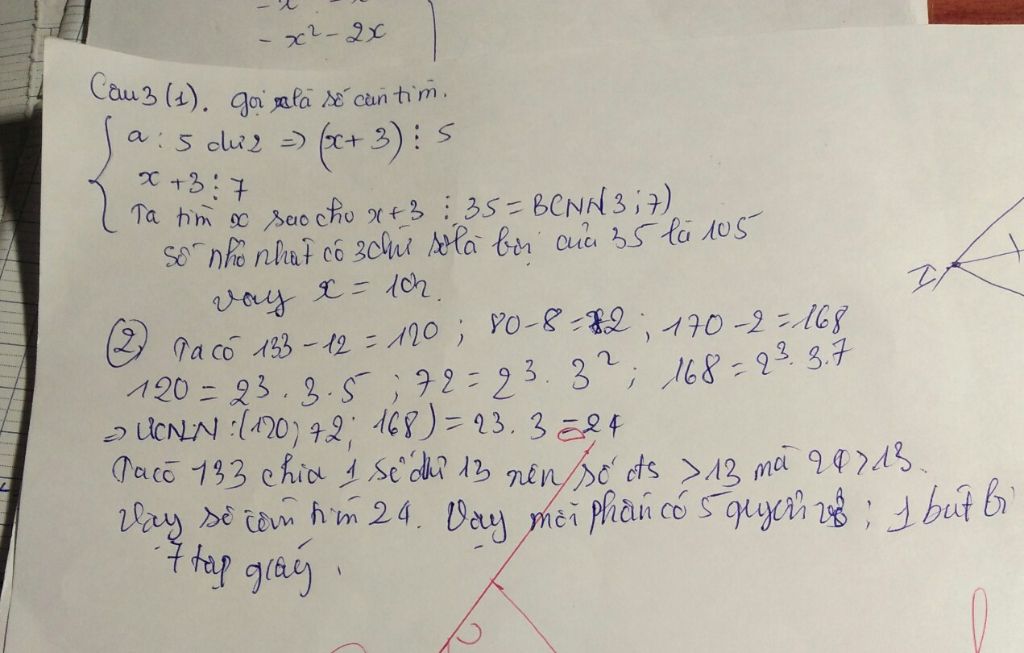 - x² - 2x
Câu 3 (1). gọi x là số cần tìm.
a : 5 dư 2 => (x + 3) ⋮ 5
x + 3 ⋮ 7
Ta tìm x sao cho x + 3 ⋮ 35 = BCNN(3; 7)
Số nhỏ nhất có 3 chữ số là bội của 35 là 105
vậy x = 102.
(2) Ta có 133 - 12 = 120 ; 80 - 8 = 72 ; 170 - 2 = 168
120 = 2³. 3. 5 ; 72 = 2³. 3² ; 168 = 2³. 3. 7
=> ƯCNN : (120; 72; 168) = 23. 3 = 24
Ta có 133 chia 1 số dư 13 nên số đó > 13 mà 24 > 13.
Vậy số cần tìm 24. Vậy mỗi phần có 5 quyển vở ; 1 bút bi
7 tập giấy.
I